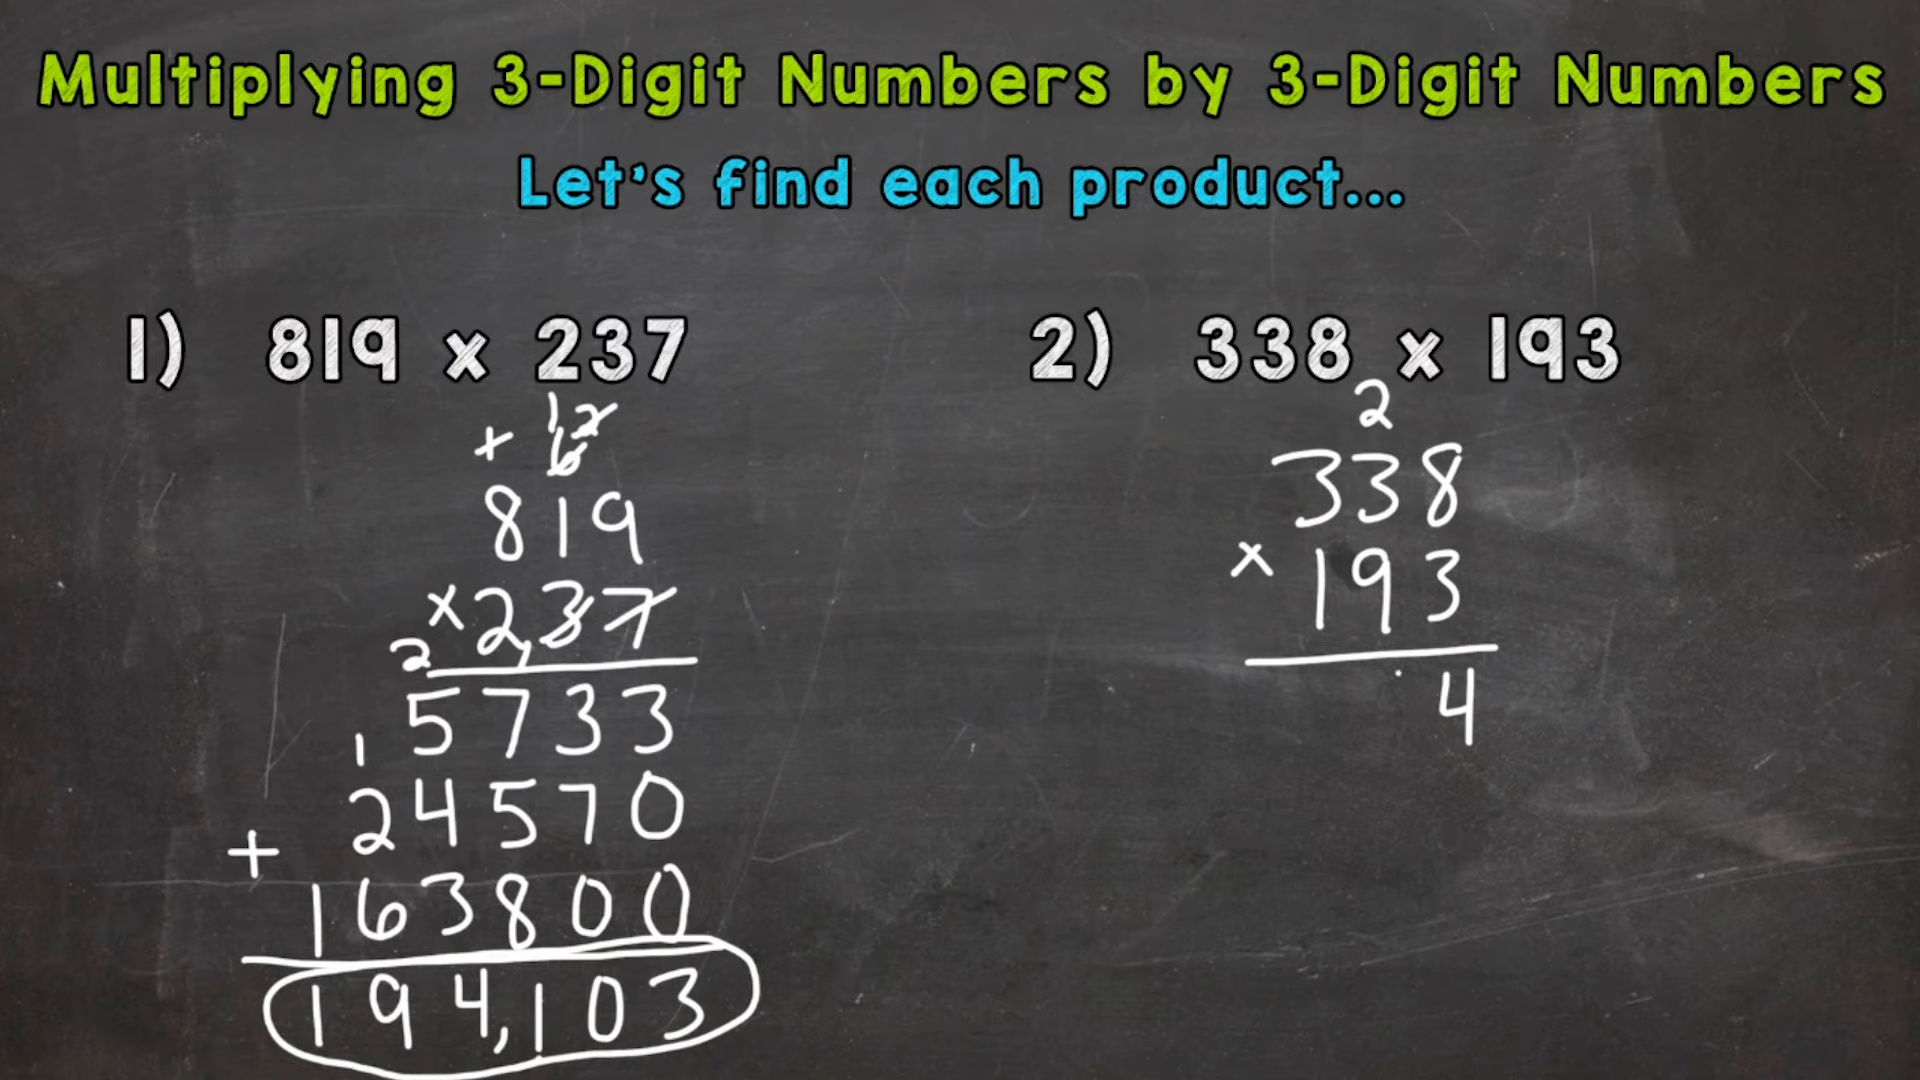 Multiplying 3-Digit Numbers by 3-Digit Numbers
Let's find each product...
1) 819 x 237
1 2
+ 6
819
x 237
2
5733
1
24570
+
163800
194,103
2) 338 x 193
2
338
x 193
4